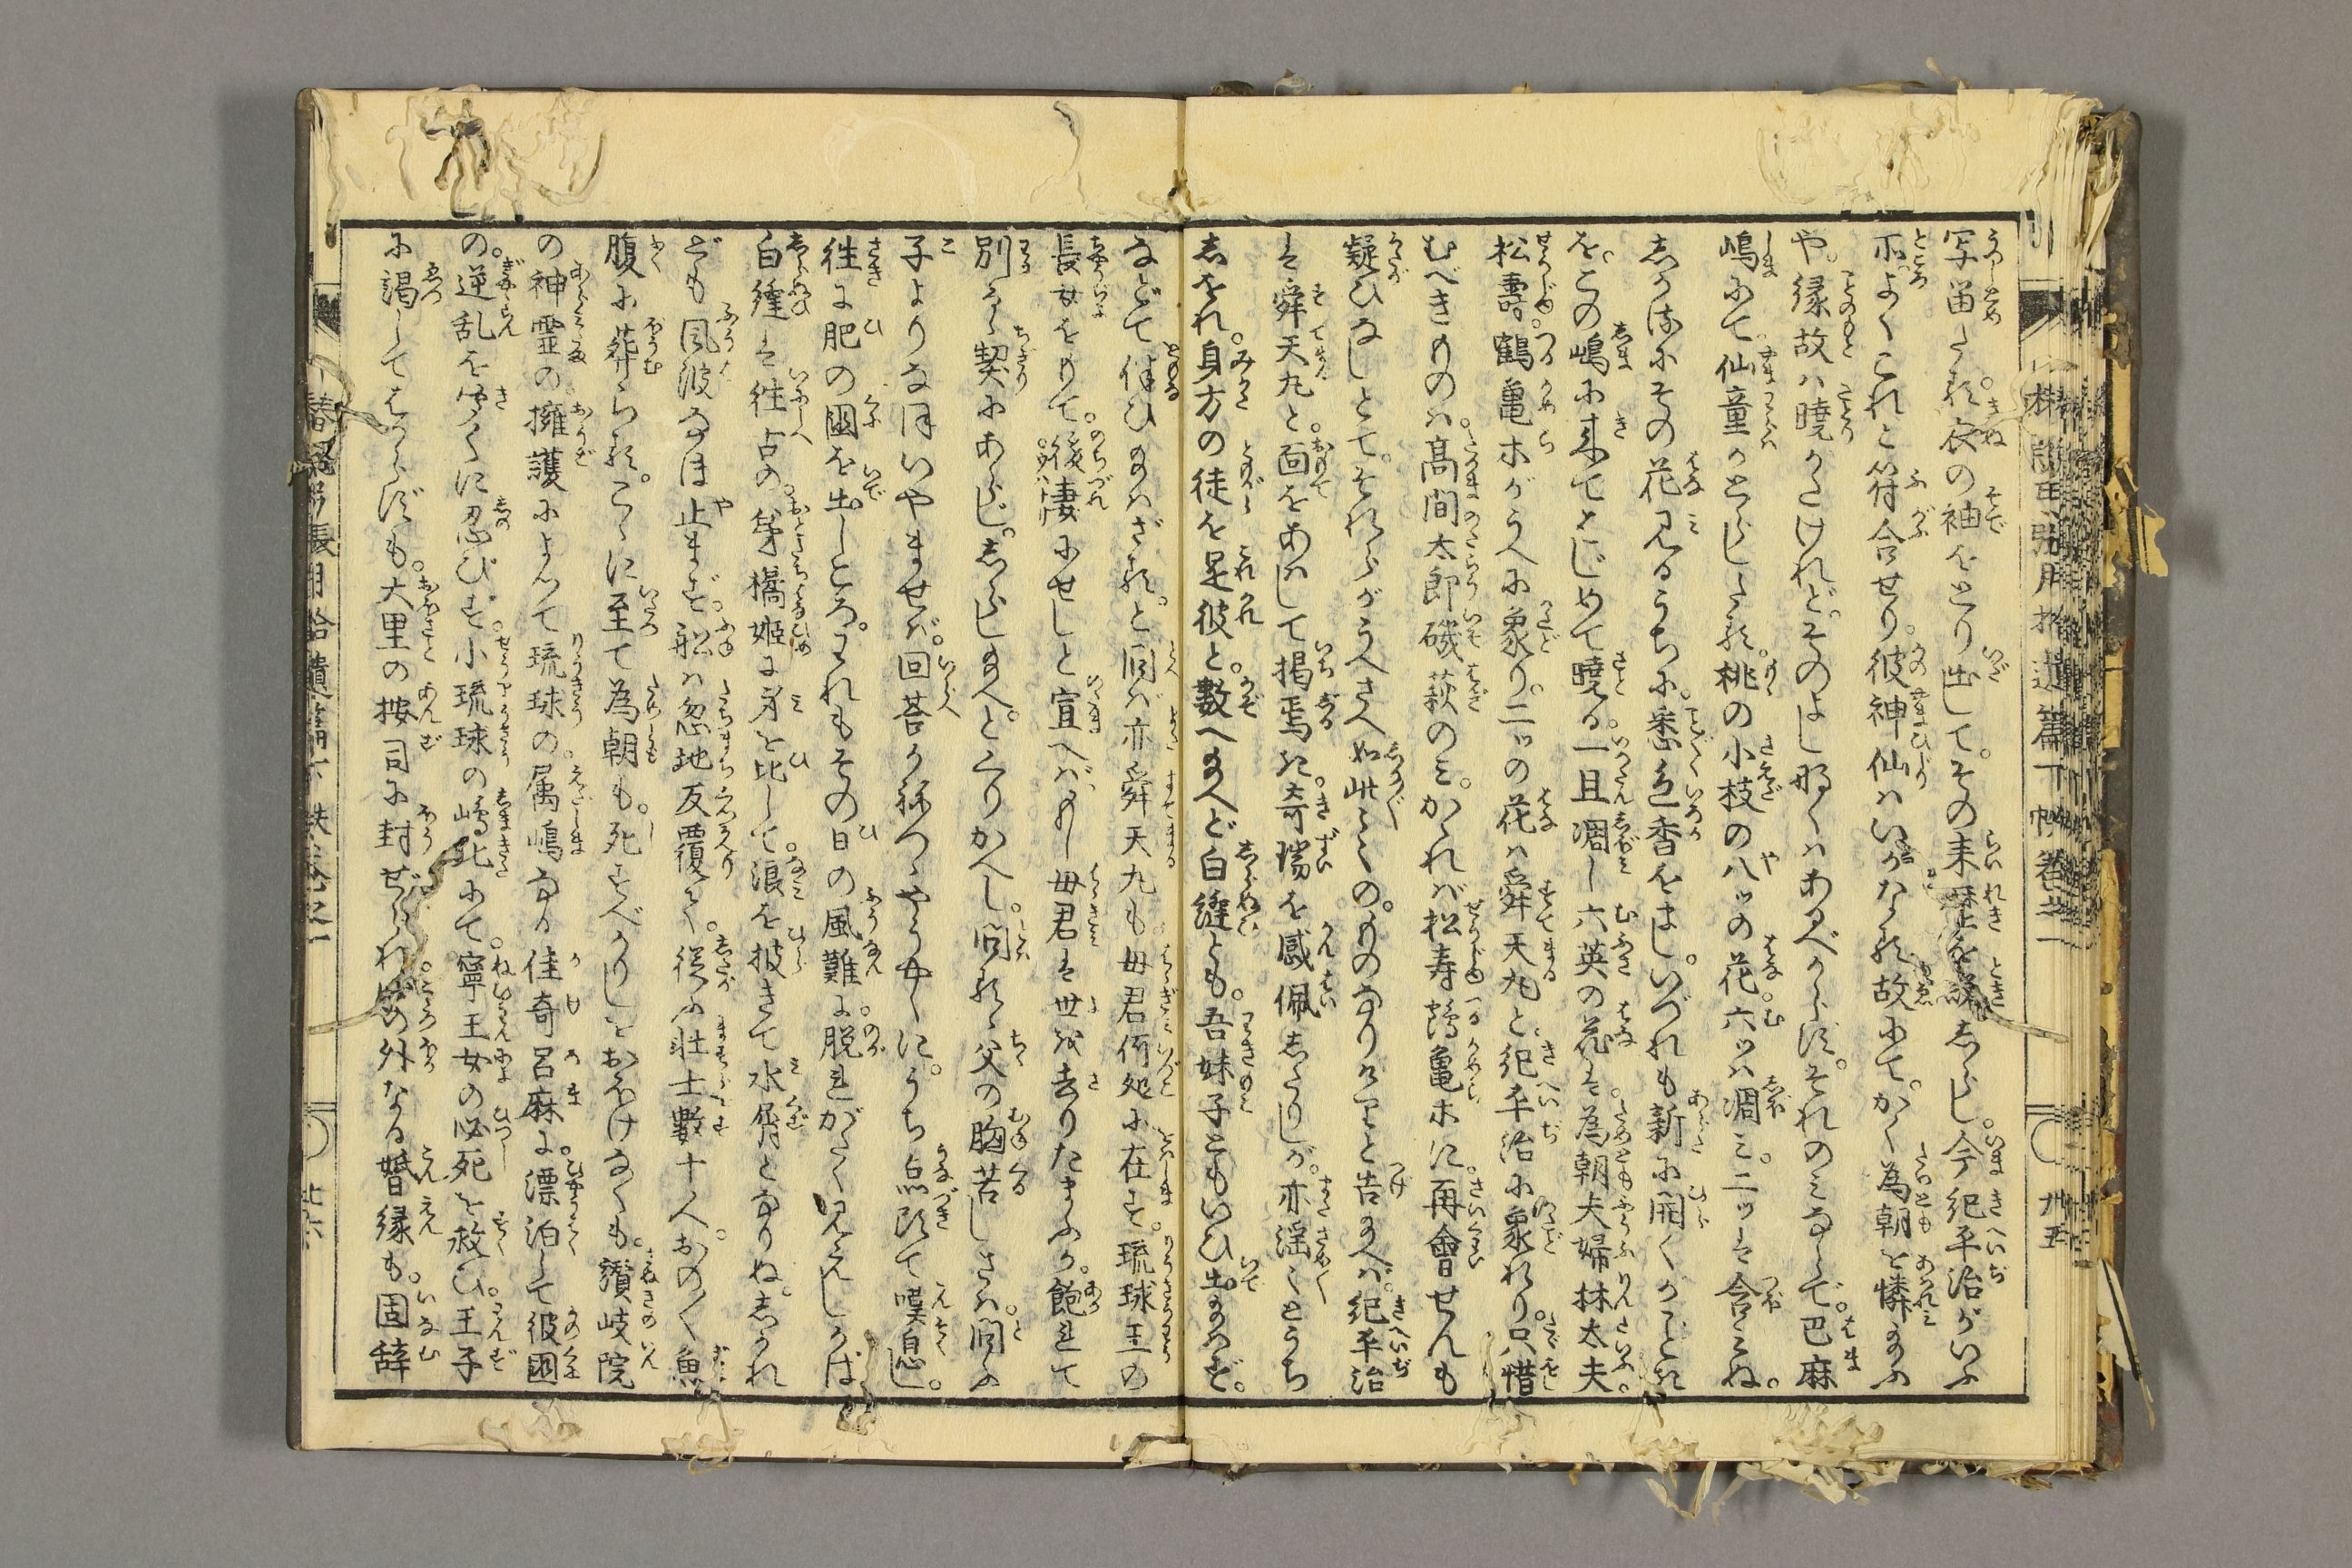 写畄たる。衣の袖をとり出して。その来歴を縁しらし。今紀平治がいふ
所よくこれと符合せり。彼神仙はいかなる故にて。かく為朝を憐み給ふ
や。縁故は暁かたけれど。そのよし那くはあるべからず。それのみならで。巴麻
嶋にて仙童がとらしたる。桃の小枝の八ッの花。六ッは凋み。二ッは含みね。
しかるにその花見るうちに。悉色香をまし。いづれも新に開くがごとき
を。この嶋に来てはじめて暁る。一旦凋し六英の花は。為朝夫婦林太夫。
松壽。鶴亀ホがうへに象り。二ッの花は舜天丸と。紀平治に象れり。只惜
むべきものは。高間太郎磯萩のみ。かゝれば松寿鶴亀ホに。再會せんも
疑ひなしとて。それらがうへさへ如此々々の。ものなりきと告給へば。紀平治
は舜天丸と。面をあはして掲焉き。奇瑞を感佩したりしが。亦滛々とうち
しをれ。身方の徒を是彼と。數へ給へど白縫とも。吾妹子ともいひ出給はず。
などて伴ひ給はざる。と問ば亦舜天丸も。母君何処に在す。琉球王の
長女をもて。後妻にせしと宣へば。もし母君は世を去りたまふか。飽れて
別るゝ契にあらじ。しらし給へ。とくりかへし。問るゝ父の胸苦しさは。問ふ
子よりなほいやませば。回荅かねつゝやうやくに。うち点頭て嘆息し。
往に肥の國を。出しところ。われもその日の風難に。脱れがたく見えしかば
白縫は往古の。弟橘姫に身を比して。浪を披きて水屑となりぬ。しかれ
ども風波なほ止まず。舩は忽地反覆りて。従ふ壮士數十人。おの〱魚
腹に葬らる。こゝに至て為朝も。死すべかりしをおほけなくも。讃岐院
の神霊の。擁護によつて琉球の。属嶋なる佳奇呂麻に。漂泊して彼國
の。逆乱を聞くに忍びず。小琉球の嶋北にて。寧王女の必死を救ひ。王子
に謁してはからずも。大里の按司に封ぜられ。心の外なる婚縁も。固辞